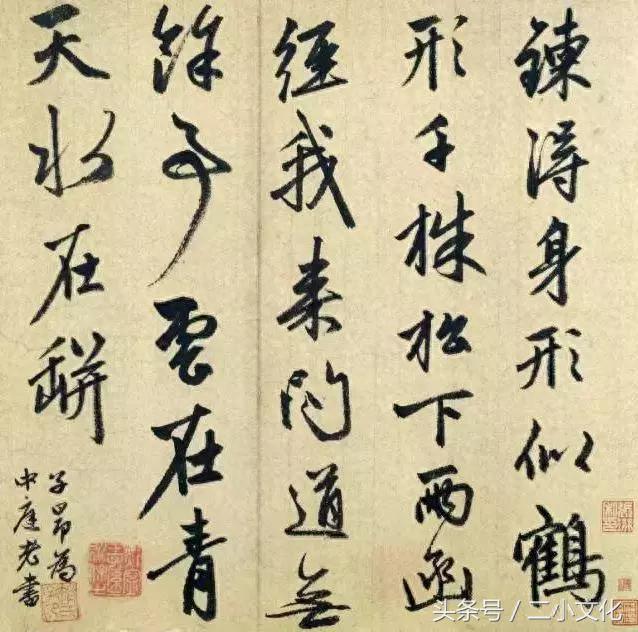 鍊得身形似鶴
形千株松下兩函
經我来問道無
餘事雲在青
天水在缾
子昂為
中庭老書
头条号 / 二小文化